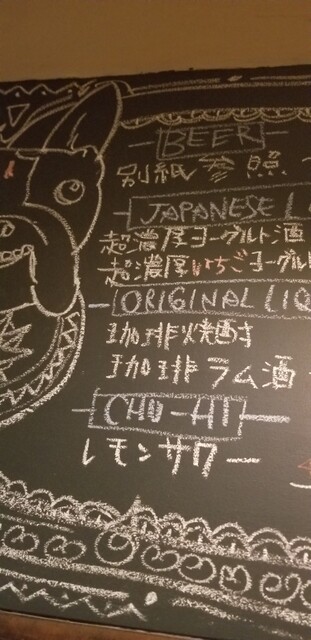 BEER
別紙参照
JAPANESE
超濃厚ヨーグルト酒
超濃厚いちごヨーグル
ORIGINAL LIQ
珈琲焼酎
珈琲ラム酒
CHU-HI
レモンサワー